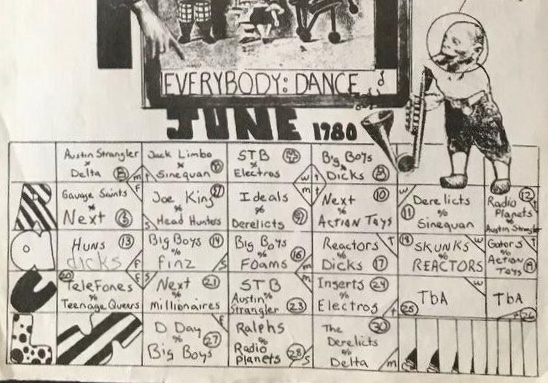 EVERYBODY: DANCE
JUNE 1980
Austin Strangler % Delta
m
Jack Limbo % Sinequan
STB % Electros
w
Big Boys % Dicks
Gauage Saints % Next
F
Joe King % Head Hunters
S
Ideals % Derelicts
m
Next % Action Toys 10
t
w
11
Derelicts % Sinequan
Radio Planets % Austin Strangler 12
t
Huns 13
dicks
F
Big Boys 14
% Finz
S
Big Boys % Foams 16
m
Reactors T
% Dicks 17
SKUNKS w
% REACTORS
Gators T
% Action Toys 19
20
TeleFones F
% Teenage Queers
S
Next 21
% millionaires
STB m
% Austin Strangler 23
Inserts 24
% Electros t
TbA w
25
TbA
26
D Day F
% 27
Big Boys
Ralphs % Radio Planets 28
S
The 30
Derelicts % Delta m